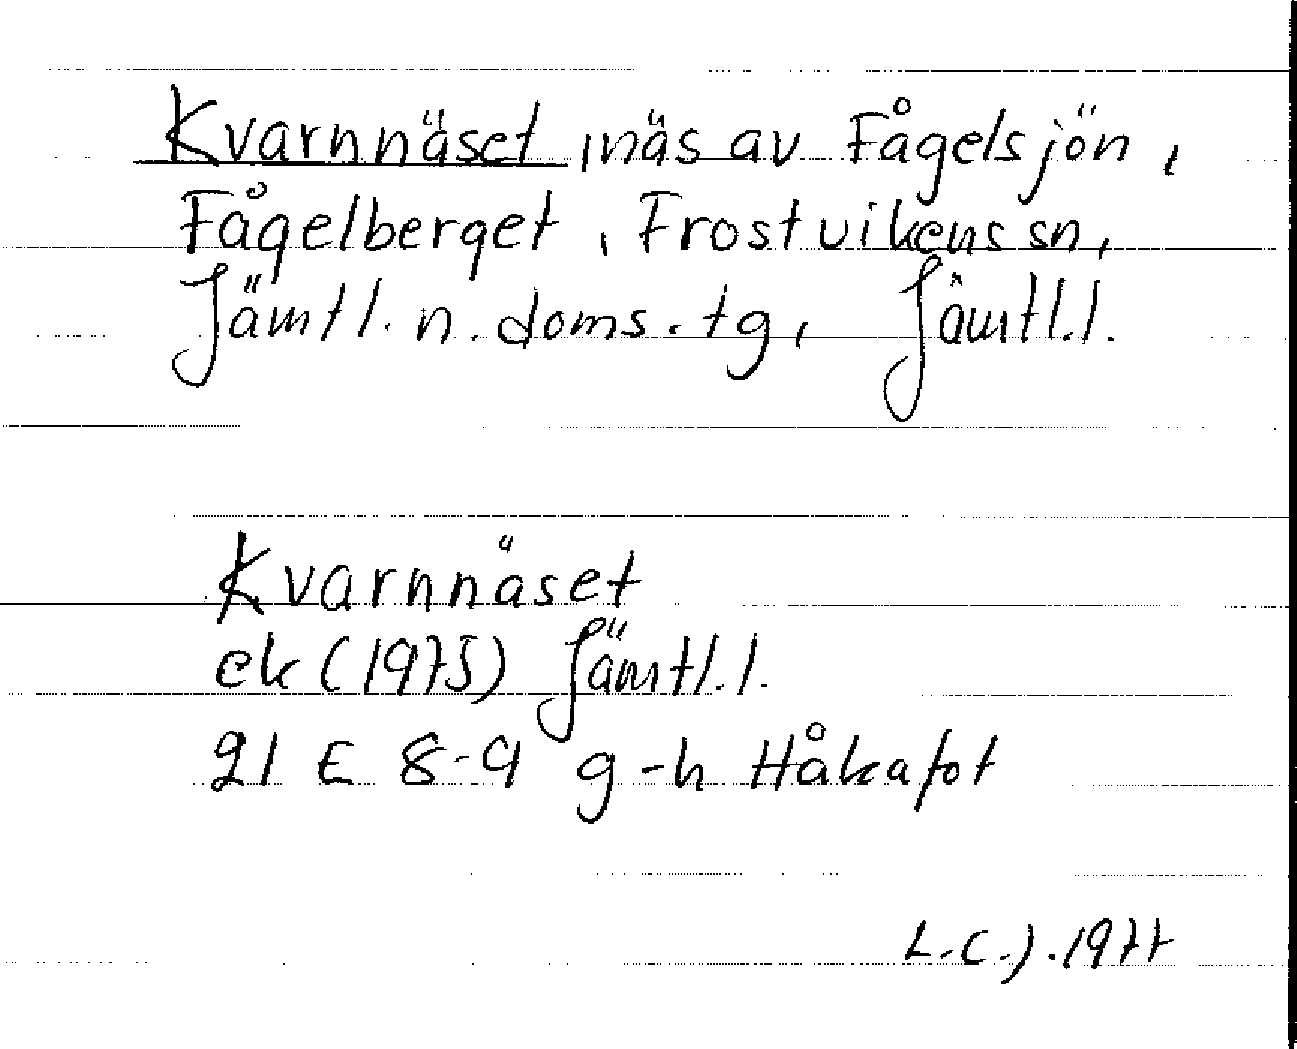 Kvarnnäset, näs av Fågelsjön,
Fågelberget, Frostvikens sn,
Jämtl. n. doms. tg, Jämtl.l.
Kvarnnäset
ek (1975) Jämtl.l.
21 E 8-9 g-h Håkafot
L.C.J. 1977